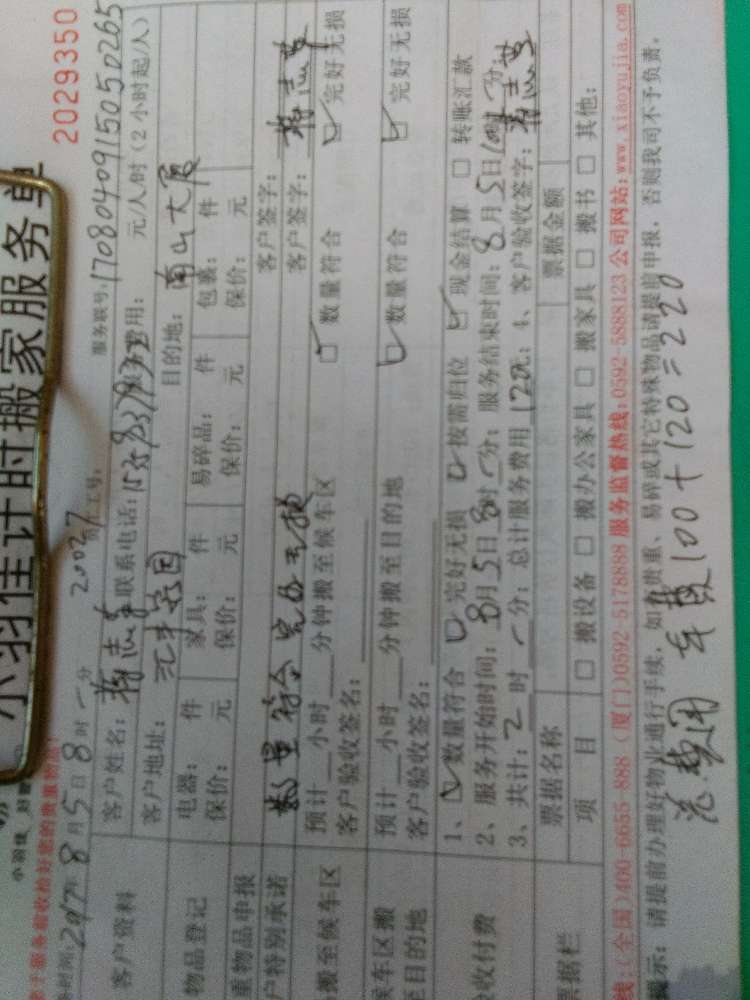 2029350
小羽佳计时搬家服务单
小羽佳 好
服务联号:1708040915050265
2017年8月5日8时一分 20027 工号:
客户资料 客户姓名: 联系电话: 服务费用: 元/人/时（2小时起/人）
客户地址: 目的地: 南山大厦
物品登记 电器: 件 家具: 件 易碎品: 件 包裹: 件
重物品申报 保价: 元 保价: 元 保价: 元 保价: 元
户特别承诺 数量符合完好无损 客户签字:
搬至候车区 预计__小时__分钟搬至候车区 数量符合 完好无损
客户验收签名: 客户签字: 蒋志
候车区搬 预计__小时__分钟搬至目的地 数量符合 完好无损
至目的地 客户验收签名:
收付费 1、数量符合 完好无损 按需归位 现金结算 转账汇款
2、服务开始时间:8月5日8时一分; 服务结束时间:8月5日10时一分
3、共计:2时一分; 总计服务费用120元; 4、客户验收签字:
票据栏 票据名称 票据金额
项 目 搬设备 搬办公家具 搬家具 搬书 其他:
线:(全国)400-6655-888 (厦门)0592-5178888 服务监督热线:0592-5888123 公司网站:www.xiaoyujia.com
提示: 请提前办理好物业通行手续，如有贵重、易碎或其它特殊物品请提前申报，否则我司不予负责。
总费用 车费100+120=220